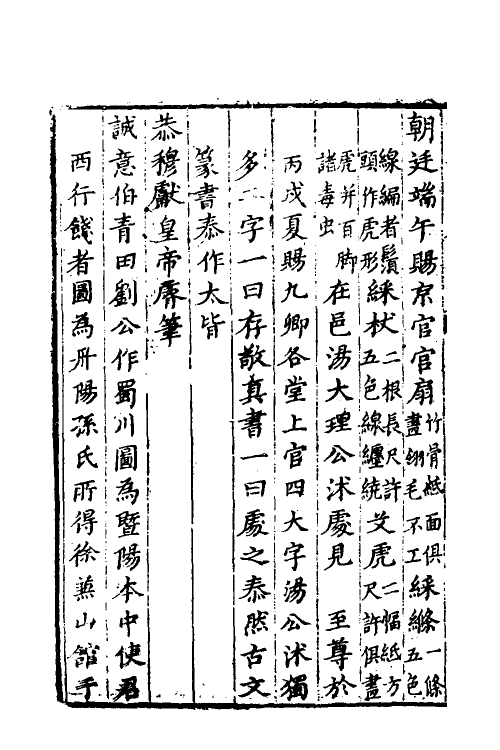 朝廷端午賜京官官扇竹骨紙面俱畫翎毛不工綵絛一條五色
線編者鬚頭作虎形綵杖二根長尺許五色線纏繞艾虎二幅紙方尺許俱畫
虎并百脚諸毒虫在邑湯大理公沐處見 至尊於
丙戌夏賜九卿各堂上官四大字湯公沐獨
多二字一曰存敬真書一曰處之泰然古文
篆書泰作太皆
恭穆獻皇帝筆
誠意伯青田劉公作蜀川圖為暨陽本中使君
西行餞者圖為丹陽孫氏所得徐燕山館于